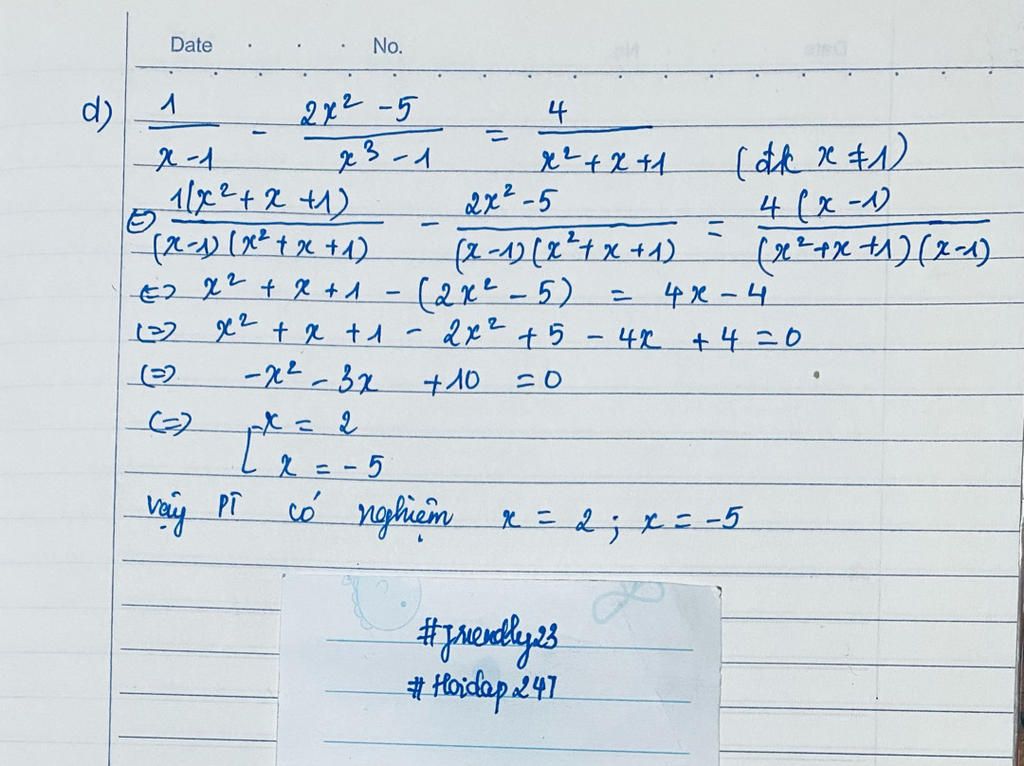 Date . . . No.
d) 1/(x-1) - (2x² - 5)/(x³ - 1) = 4/(x² + x + 1) (đk x ≠ 1)
(=) 1(x² + x + 1)/((x-1)(x² + x + 1)) - (2x² - 5)/((x-1)(x² + x + 1)) = 4(x - 1)/((x² + x + 1)(x-1))
(=) x² + x + 1 - (2x² - 5) = 4x - 4
(=) x² + x + 1 - 2x² + 5 - 4x + 4 = 0
(=) -x² - 3x + 10 = 0
(=) [ x = 2
x = -5
vậy PT có nghiệm x = 2 ; x = -5
#friendly23
#Hoidap247